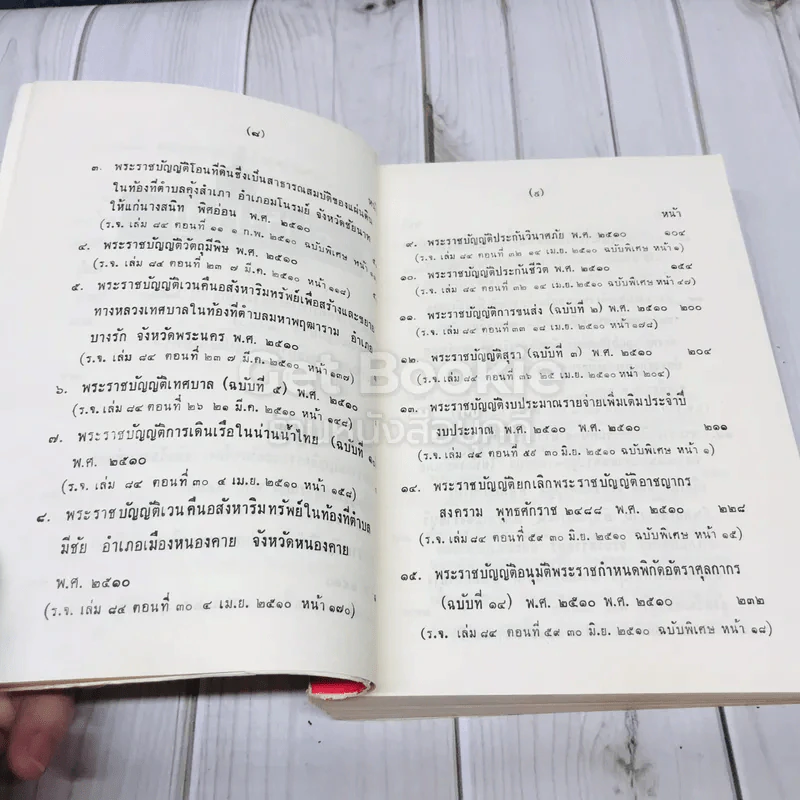 (๘)
๓. พระราชบัญญัติโอนที่ดินซึ่งเป็นสาธารณสมบัติของแผ่นดิน
ในท้องที่ตำบลคุ้งสำเภา อำเภอมโนรมย์ จังหวัดชัยนาท
ให้แก่นางสนิท พิศอ่อน พ.ศ. ๒๕๑๐
(ร.จ. เล่ม ๘๔ ตอนที่ ๑๑ ๑ ก.พ. ๒๕๑๐ ฉบับพิเศษ หน้า
๔. พระราชบัญญัติวัตถุมีพิษ พ.ศ. ๒๕๑๐
(ร.จ. เล่ม ๘๔ ตอนที่ ๒๓ ๗ มี.ค. ๒๕๑๐ หน้า ๑๑๘)
๕. พระราชบัญญัติเวนคืนอสังหาริมทรัพย์เพื่อสร้างและขยาย
ทางหลวงเทศบาลในท้องที่ตำบลมหาพฤฒาราม อำเภอ
บางรัก จังหวัดพระนคร พ.ศ. ๒๕๑๐
(ร.จ. เล่ม ๘๔ ตอนที่ ๒๓ ๗ มี.ค. ๒๕๑๐ หน้า ๑๓๗)
๖. พระราชบัญญัติเทศบาล (ฉบับที่ ๕) พ.ศ. ๒๕๑๐
(ร.จ. เล่ม ๘๔ ตอนที่ ๒๖ ๒๑ มี.ค. ๒๕๑๐ หน้า ๑๔๘)
๗. พระราชบัญญัติการเดินเรือในน่านน้ำไทย (ฉบับที่
พ.ศ. ๒๕๑๐
(ร.จ. เล่ม ๘๔ ตอนที่ ๓๐ ๔ เม.ย. ๒๕๑๐ หน้า ๑๕๘)
๘. พระราชบัญญัติเวนคืนอสังหาริมทรัพย์ในท้องที่ตำบล
มีชัย อำเภอเมืองหนองคาย จังหวัดหนองคาย
พ.ศ. ๒๕๑๐
(ร.จ. เล่ม ๘๔ ตอนที่ ๓๐ ๔ เม.ย. ๒๕๑๐ หน้า ๑๗๐)
(๙)
หน้า
๙. พระราชบัญญัติประกันวินาศภัย พ.ศ. ๒๕๑๐ ๑๐๔
(ร.จ. เล่ม ๘๔ ตอนที่ ๓๒ ๑๔ เม.ย. ๒๕๑๐ ฉบับพิเศษ หน้า ๑)
๑๐. พระราชบัญญัติประกันชีวิต พ.ศ. ๒๕๑๐ ๑๕๔
(ร.จ. เล่ม ๘๔ ตอนที่ ๓๒ ๑๔ เม.ย. ๒๕๑๐ ฉบับพิเศษ หน้า ๔๗)
๑๑. พระราชบัญญัติการขนส่ง (ฉบับที่ ๒) พ.ศ. ๒๕๑๐ ๒๐๐
(ร.จ. เล่ม ๘๔ ตอนที่ ๓๓ ๑๘ เม.ย. ๒๕๑๐ หน้า ๑๗๘)
๑๒. พระราชบัญญัติสุรา (ฉบับที่ ๓) พ.ศ. ๒๕๑๐ ๒๐๔
(ร.จ. เล่ม ๘๔ ตอนที่ ๓๖ ๒๕ เม.ย. ๒๕๑๐ หน้า ๒๐๔)
๑๓. พระราชบัญญัติงบประมาณรายจ่ายเพิ่มเติมประจำปี
งบประมาณ พ.ศ. ๒๕๑๐ พ.ศ. ๒๕๑๐ ๒๑๑
(ร.จ. เล่ม ๘๔ ตอนที่ ๕๙ ๓๐ มิ.ย. ๒๕๑๐ ฉบับพิเศษ หน้า ๑)
๑๔. พระราชบัญญัติยกเลิกพระราชบัญญัติอาชญากร
สงคราม พุทธศักราช ๒๔๘๘ พ.ศ. ๒๕๑๐ ๒๒๘
(ร.จ. เล่ม ๘๔ ตอนที่ ๕๙ ๓๐ มิ.ย. ๒๕๑๐ ฉบับพิเศษ หน้า ๑๕)
๑๕. พระราชบัญญัติอนุมัติพระราชกำหนดพิกัดอัตราศุลกากร
(ฉบับที่ ๑๔) พ.ศ. ๒๕๑๐ พ.ศ. ๒๕๑๐ ๒๓๒
(ร.จ. เล่ม ๘๔ ตอนที่ ๕๙ ๓๐ มิ.ย. ๒๕๑๐ ฉบับพิเศษ หน้า ๑๘)